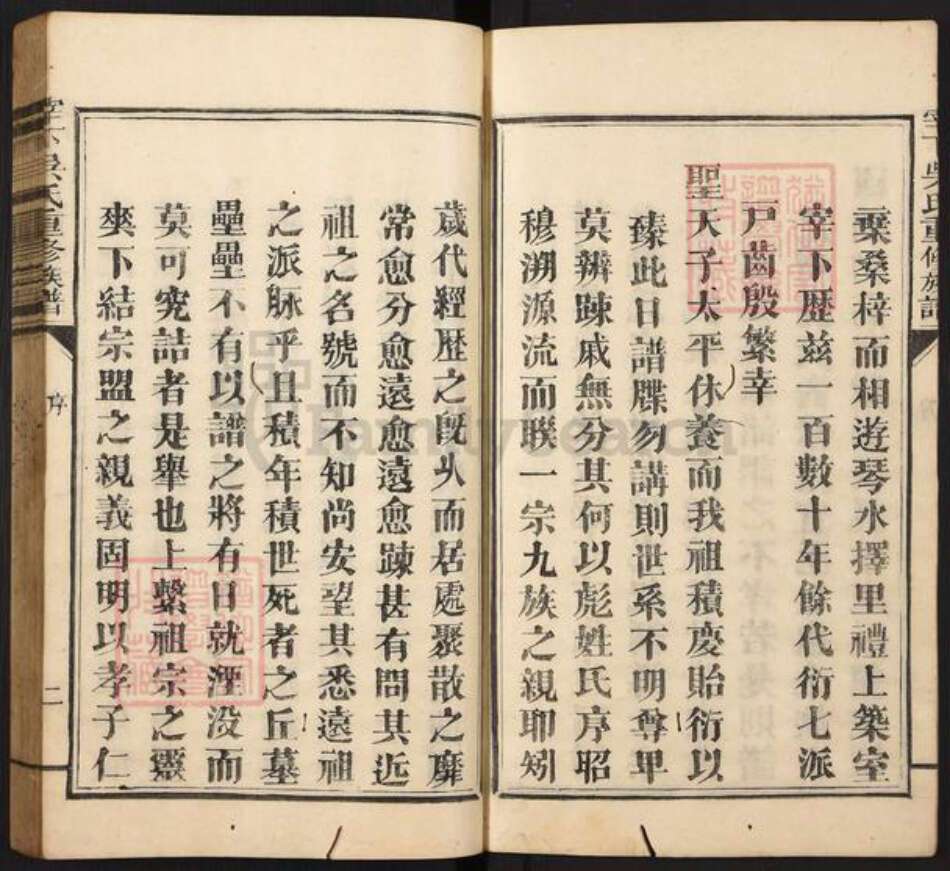 棄桑梓而相遊琴水擇里禮上築室
宰下歷兹一百數十年餘代衍七派
戸齒殷繁幸
聖天子太平休養而我祖積慶貽衍以
臻此日譜牒勿講則世系不明尊卑
莫辨踈戚無分其何以彪姓氏序昭
穆溯源流而联一宗九族之親耶矧
歲代經歷之旣乆而居處聚散之靡
常愈分愈遠愈遠愈踈甚有問其近
祖之名號而不知尚安望其悉遠祖
之派脉乎且積年積世死者之丘墓
壘壘不有以譜之將有日就湮没而
莫可究詰者是舉也上繫祖宗之靈
爽下結宗盟之親義固明以孝子仁
宰下吳氏重修族譜
序
二
FamilySearch